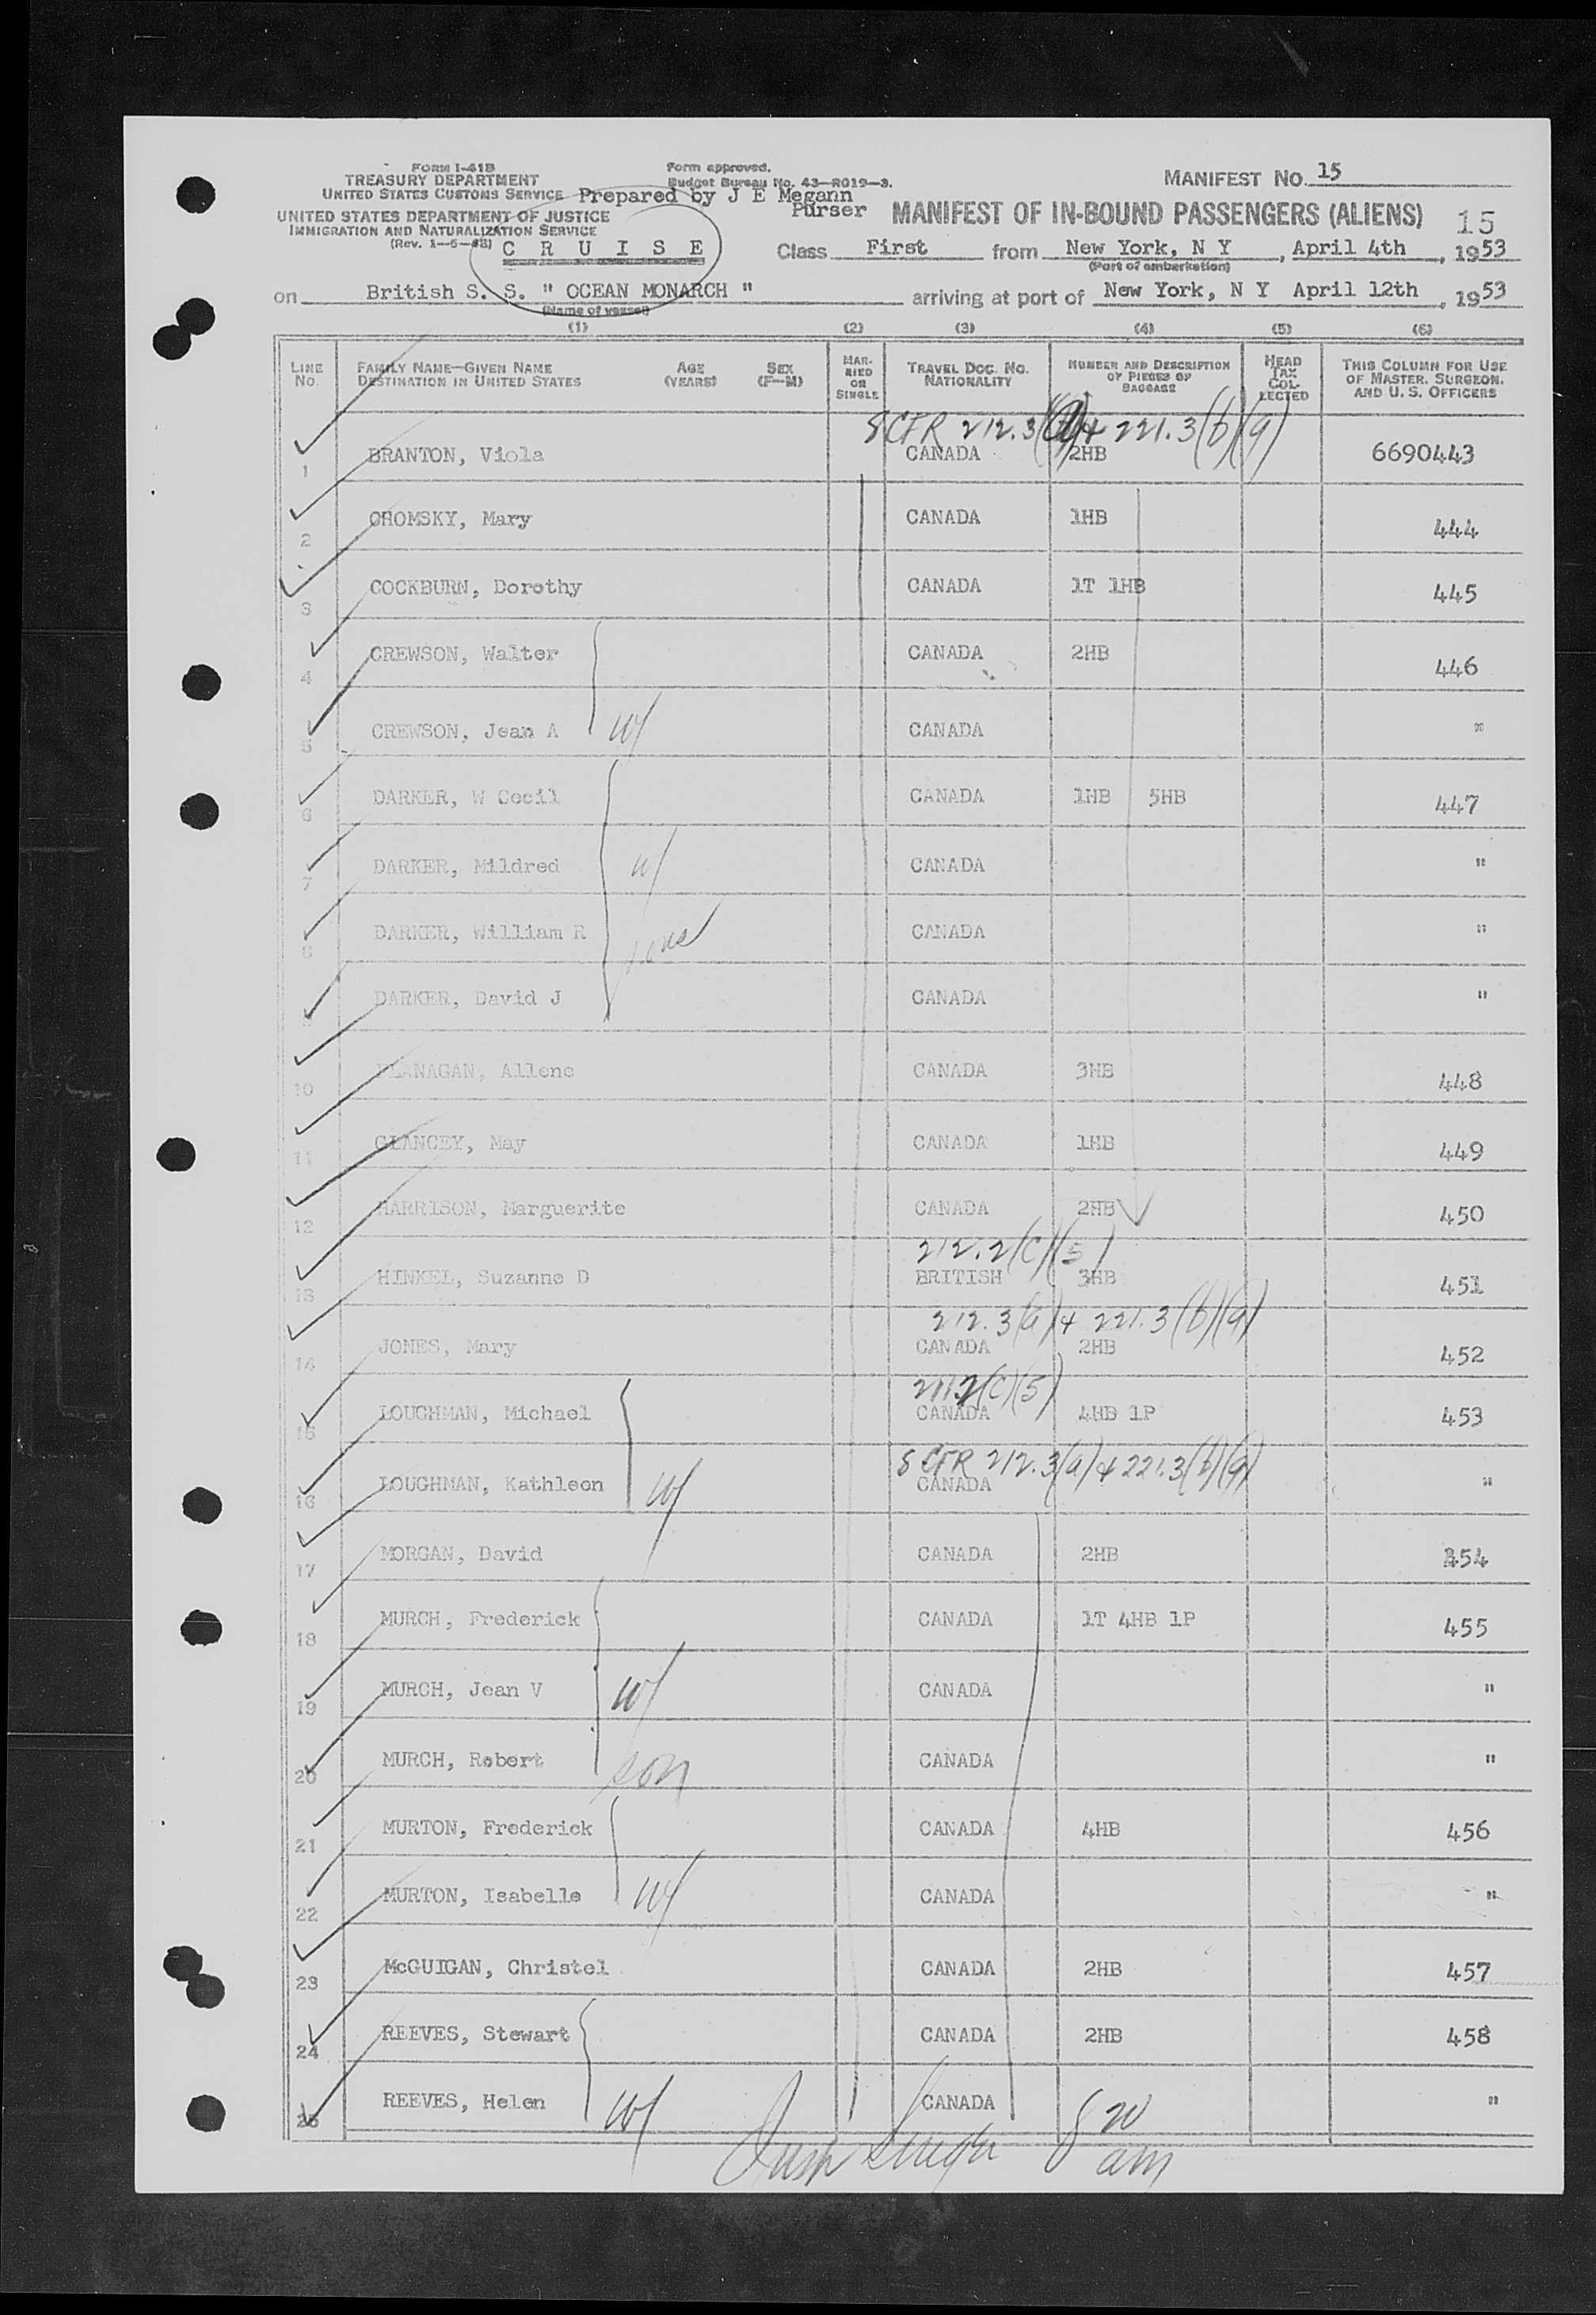 Form I-41B
TREASURY DEPARTMENT
UNITED STATES CUSTOMS SERVICE
UNITED STATES DEPARTMENT OF JUSTICE
IMMIGRATION AND NATURALIZATION SERVICE
Form approved.
Budget Bureau No. 43—R019—3.
Prepared by J E Megann
Purser
MANIFEST NO. 15
MANIFEST OF IN-BOUND PASSENGERS (ALIENS) 15
C R U I S E
Class First from New York, N Y, April 4th, 1953
(Port of embarkation)
on British S. S. " OCEAN MONARCH " arriving at port of New York, N Y April 12th, 1953
(Name of vessel)
(1) (2) (3) (4) (5) (6)
LINE No. FAMILY NAME—GIVEN NAME DESTINATION IN UNITED STATES AGE (YEARS) SEX (F—M) MARRIED OR SINGLE TRAVEL DOC. NO. NATIONALITY NUMBER AND DESCRIPTION OF PIECES OF BAGGAGE HEAD TAX COLLECTED THIS COLUMN FOR USE OF MASTER, SURGEON, AND U. S. OFFICERS
8 CFR 212.3(a) + 221.3(b)(9)
1 BRANTON, Viola CANADA 2HB 6690443
2 CHOMSKY, Mary CANADA 1HB 444
3 COCKBURN, Dorothy CANADA 1T 1HB 445
4 CREWSON, Walter CANADA 2HB 446
5 CREWSON, Jean A W/ CANADA "
6 DARKER, W Cecil CANADA 1HB 5HB 447
7 DARKER, Mildred W/ CANADA "
8 DARKER, William R sons CANADA "
9 DARKER, David J CANADA "
10 FLANAGAN, Allene CANADA 3HB 448
11 GLANCEY, May CANADA 1HB 449
12 HARRISON, Marguerite CANADA 2HB 450
212.2(C)(5)
13 HINKEL, Suzanne D BRITISH 3HB 451
212.3(a) + 221.3(b)(9)
14 JONES, Mary CANADA 2HB 452
212(C)(5)
15 LOUGHMAN, Michael CANADA 4HB 1P 453
8 CFR 212.3(a) + 221.3(b)(9)
16 LOUGHMAN, Kathleen W/ CANADA "
17 MORGAN, David CANADA 2HB 454
18 MURCH, Frederick CANADA 1T 4HB 1P 455
19 MURCH, Jean V W/ CANADA "
20 MURCH, Robert son CANADA "
21 MURTON, Frederick CANADA 4HB 456
22 MURTON, Isabelle W/ CANADA "
23 McGUIGAN, Christel CANADA 2HB 457
24 REEVES, Stewart CANADA 2HB 458
25 REEVES, Helen W/ CANADA "